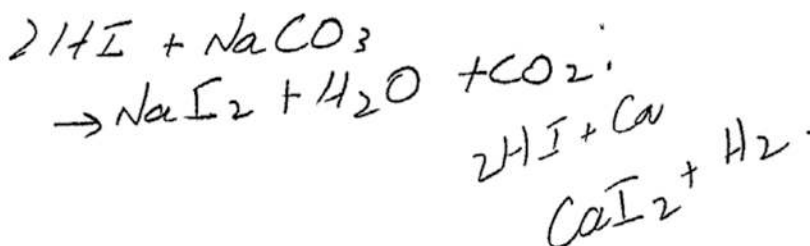 2HI + NaCO3
→ NaI2 + H2O + CO2.
2HI + Ca
CaI2 + H2.